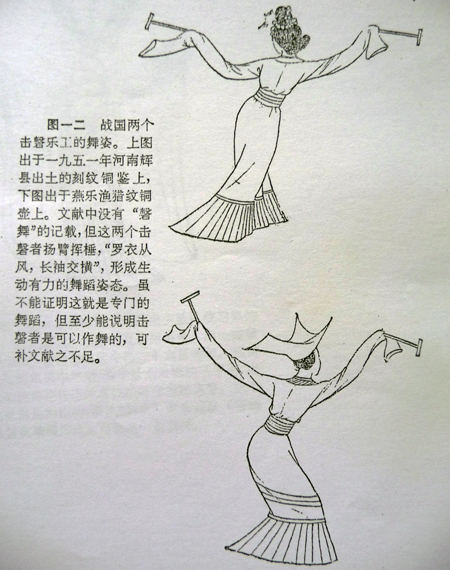 图一二　战国两个
击磬乐工的舞姿。上图
出于一九五一年河南辉
县出土的刻纹铜鉴上，
下图出于燕乐渔猎纹铜
壶上。文献中没有“磬
舞”的记载，但这两个击
磬者扬臂挥棰，“罗衣从
风，长袖交横”，形成生
动有力的舞蹈姿态。虽
不能证明这就是专门的
舞蹈，但至少能说明击
磬者是可以作舞的，可
补文献之不足。